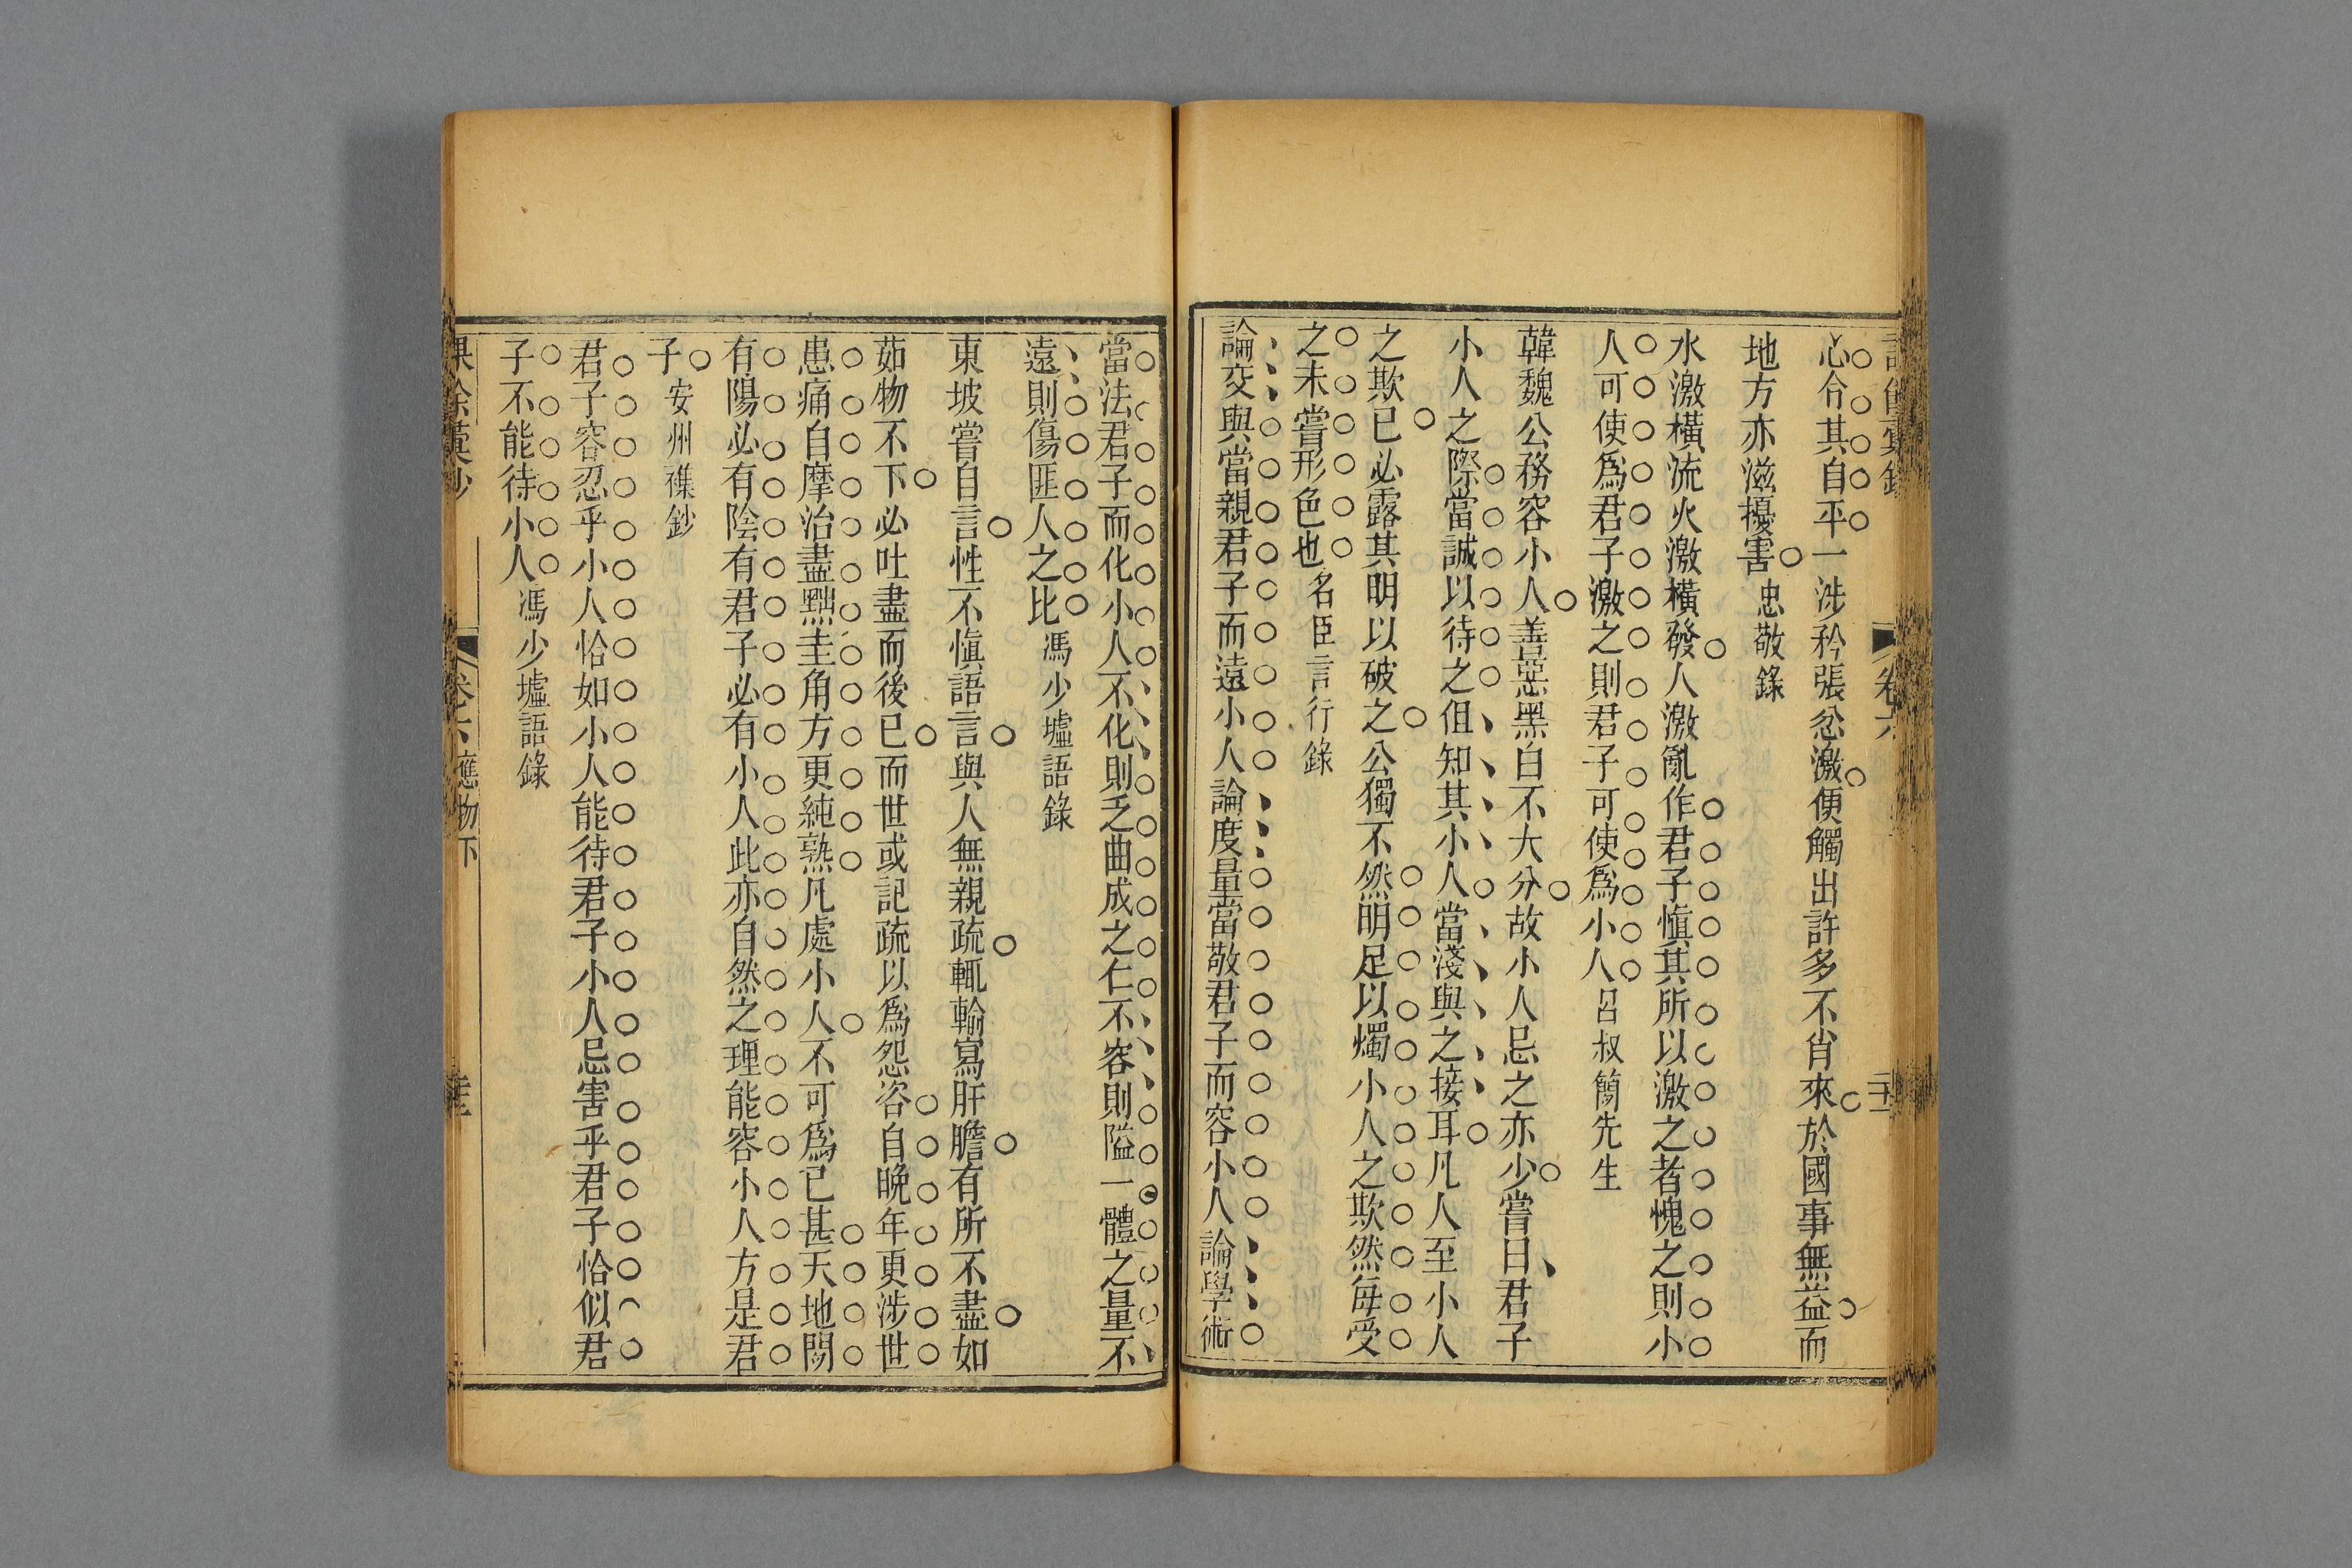 卷六
心合其自平一涉矜張忿激便觸出許多不肖來於國事無益而
地方亦滋擾害忠敬錄
水激橫流火激橫發人激亂作君子愼其所以激之者愧之則小
人可使爲君子激之則君子可使爲小人呂叔簡先生
韓魏公務容小人善惡黑白不大分故小人忌之亦少嘗曰君子
小人之際當誠以待之伹知其小人當淺與之接耳凡人至小人
之欺已必露其明以破之公獨不然明足以燭小人之欺然每受
之未嘗形色也名臣言行錄
論交與當親君子而遠小人論度量當敬君子而容小人論學術
當法君子而化小人不化則乏曲成之仁不容則隘一體之量不
遠則傷匪人之比馮少墟語錄
東坡嘗自言性不愼語言與人無親疏輒輸寫肝膽有所不盡如
茹物不下必吐盡而後已而世或記疏以爲怨咨自晚年更涉世
患痛自摩治盡黜圭角方更純熟凡處小人不可爲已甚天地間
有陽必有陰有君子必有小人此亦自然之理能容小人方是君
子安州襍鈔
君子容忍乎小人恰如小人能待君子小人忌害乎君子恰似君
子不能待小人馮少墟語錄
卷六應物下